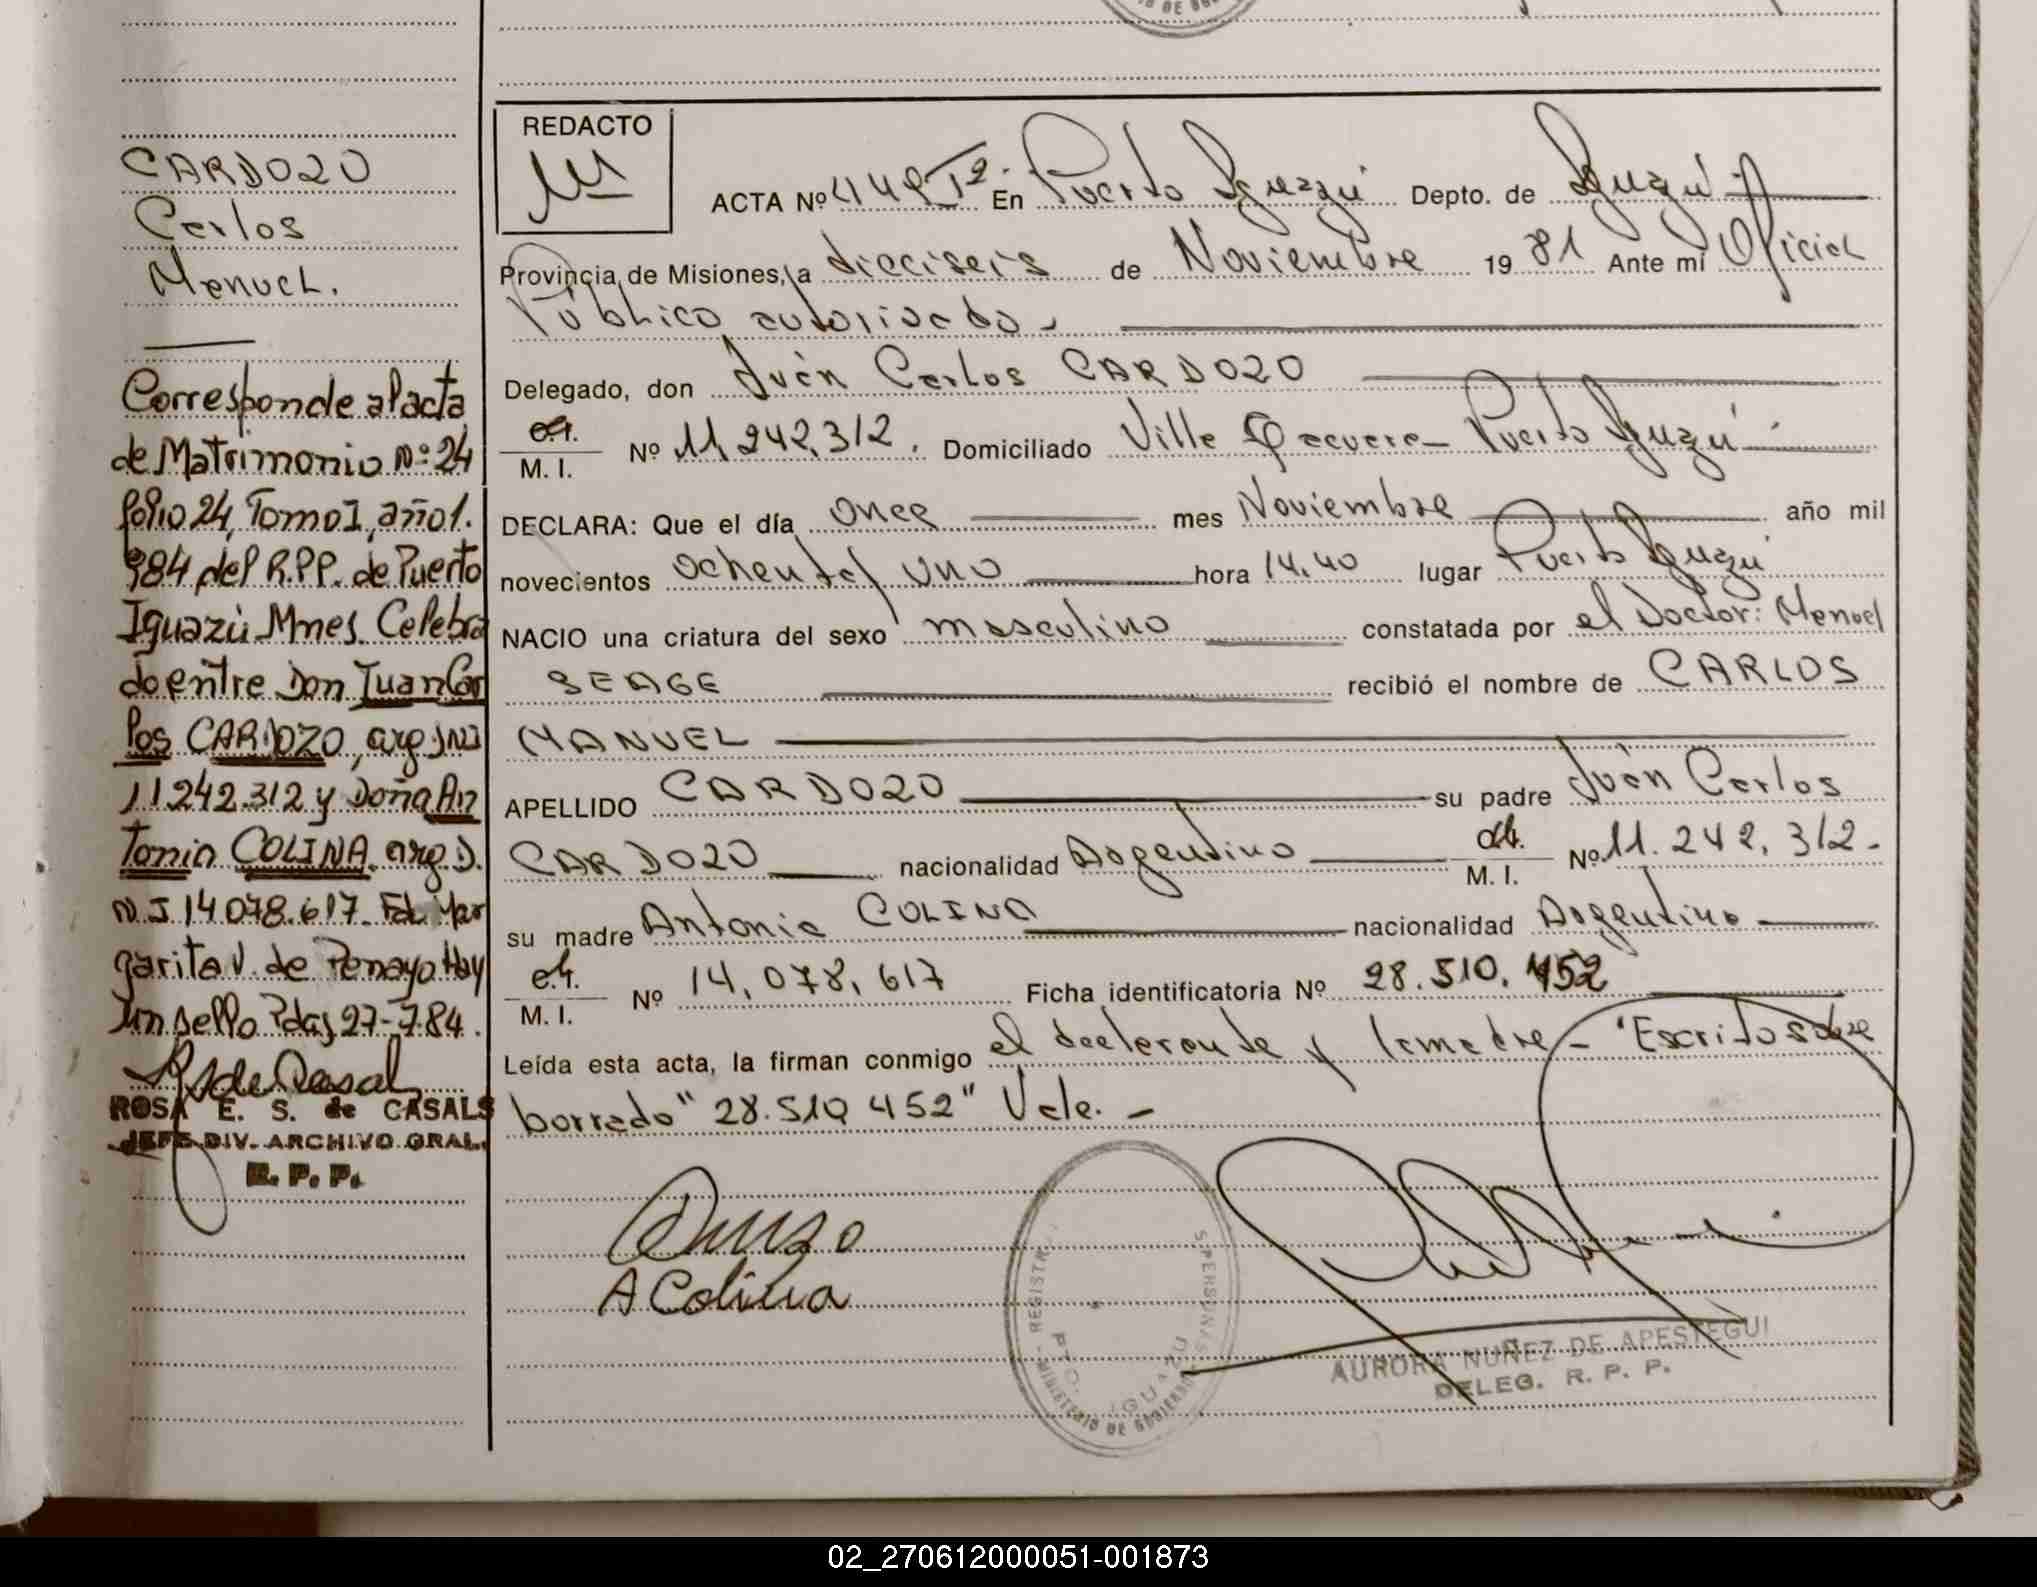 REDACTO
ACTA Nº 448 Tº. En Puerto Iguazú Depto. de Iguazú
Provincia de Misiones, a dieciseis de Noviembre 1981 Ante mí Oficial
Público autorizado.
Delegado, don Juan Carlos CARDOZO
M. I. Nº 11.242.312. Domiciliado Villa Puerto Iguazú
DECLARA: Que el día once mes Noviembre año mil
novecientos ochenta y uno hora 14.40 lugar Puerto Iguazú
NACIO una criatura del sexo masculino constatada por el Doctor: Manuel
SEAGE recibió el nombre de CARLOS
MANUEL
APELLIDO CARDOZO su padre Juan Carlos
CARDOZO nacionalidad Argentino M. I. Nº 11.242.312.
su madre Antonia COLINA nacionalidad Argentina
M. I. Nº 14.078.617 Ficha identificatoria Nº 28.510.452
Leída esta acta, la firman conmigo el declarante y la madre - "Escrito sobre
borrado" 28.510 452" Vale. -
A Colina
REGISTR PERSONAS
PTO. IGUAZU
MINISTERIO DE GOBIERNO
AURORA NUÑEZ DE APESTEGUI
DELEG. R. P. P.
CARDOZO
Carlos
Manuel.
Corresponde al acta
de Matrimonio Nº 24
folio 24, Tomo I, año 1.
984 del R.P.P. de Puerto
Iguazú Mnes. Celebra
do entre Don Juan Car
los CARDOZO, arg DNI
11242.312 y Doña An
tonia COLINA arg D.
N.I 14078.617. Fdo Mar
garita V. de Penayo Hay
un sello Pdas, 27-7.84.
ROSA E. S. de CASALS
JEFE DIV. ARCHIVO GRAL.
R. P. P.
02_270612000051-001873